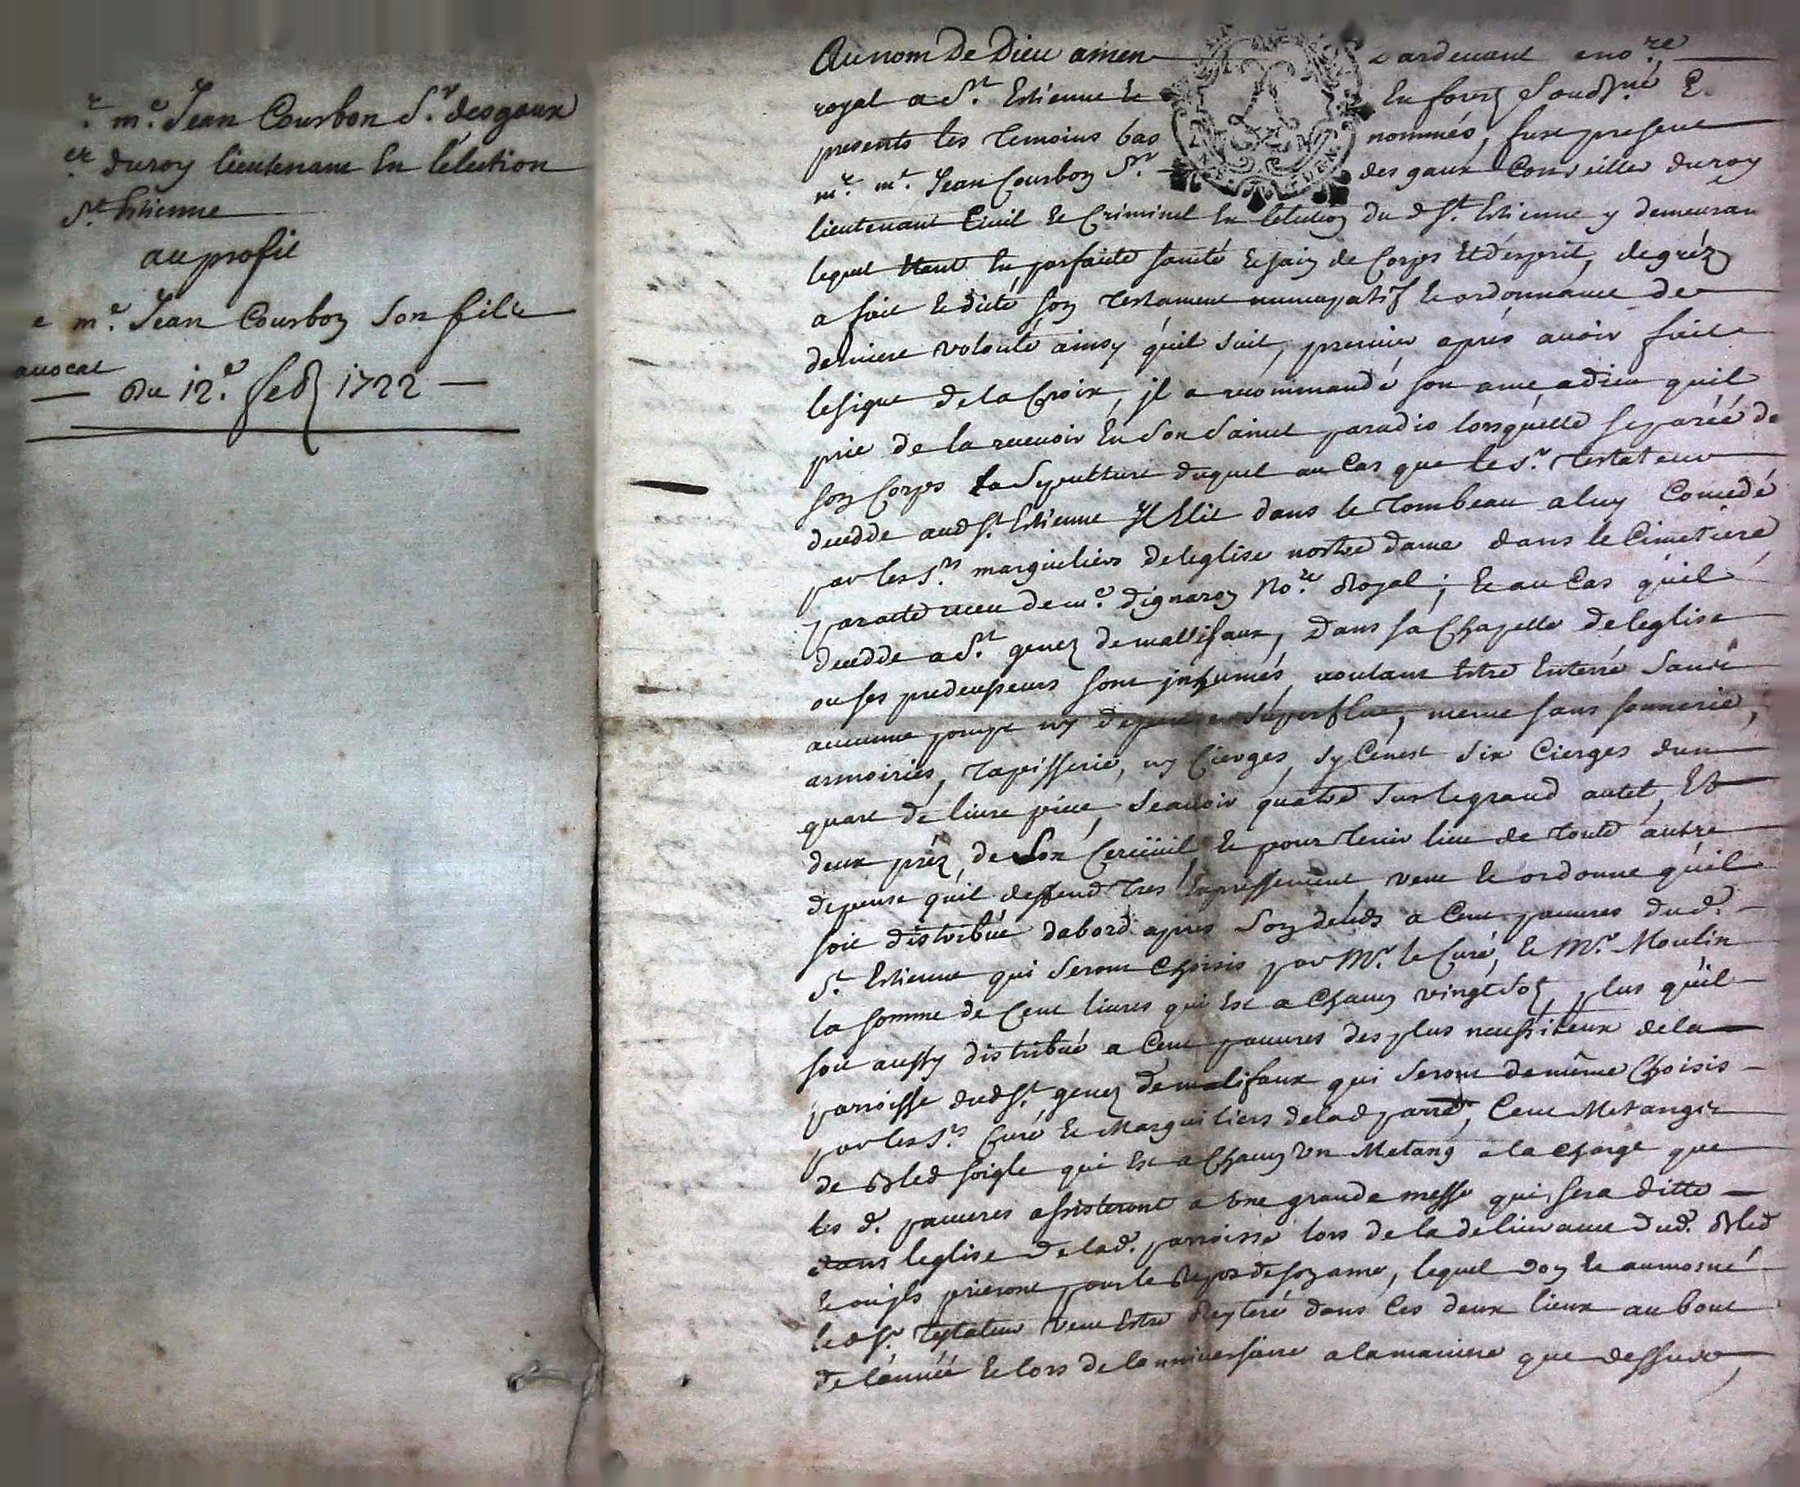 mᵉ. Jean Courbon Sʳ. desgaux
duroy lieutenant En lélection
Sᵗ. Estienne
au profit
mᵉ. Jean Courbon Son fils
auocat
Du 12ᵉ. feb 1722
Au nom De Dieu amen pardeuant <unk> noʳᵉ
royal a Sᵗ. Estienne En forez Soubsⁿᵉ E
presents les Temoins bas nommés, fust present
mʳ. mᵉ. Jean Courbon Sʳ. desgaux Conseiller duroy
lieutenant Ciuil Et Criminel En lélection dud Sᵗ. Estienne y demeuran
lequel Etant En parfaite santé Et sain de Corps Et désprit, de gréz
a fait Et dicté son Testament nuncupatif Et ordonnance de
derniere volonté ainsy qúil suit, premier aprés auoir fait
le signe de la Croix, jl a recommandé son ame adieu quil
prie de la receuoir En Son Saint paradis lorsquelle separéé de
son Corps La Sepulture duquel au Cas que le Sʳ. Testateur
decedde aud Sᵗ. Estienne Il Elit dans le Tombeau a luy Concedé
par les Sʳˢ marguiliers de leglise nostre dame dans le Cimetiere
par acte receu de mᵉ. dignaron Noʳᵉ Royal; Et au Cas qúil
decedde a Sᵗ. genez de mallifaux, Dans sa Chapelle de leglise
ou ses predecesseurs sont jnhumés, voulant Estre Enterré Sans
aucunne pompe ny depense Superflue, meme sans sonnerie,
armoiries, Tapisserie, ny Cierges, sy Cenest Six Cierges dun
quart de liure piece, Scauoir quatre Sur le grand autel, Et
deux préz de Son Cerceüil Et pour Tenir lieu de Toute autre
depense qúil deffend Tres Expressement, veut Et ordonne qúil
soit distribué dabord apres Son deceds a Cent pauures dud.
Sᵗ. Estienne qui Seront Choisis par Mʳ. le Curé, Et Mʳ. Moulin
la somme de Cent liures qui Est a Chacun vingt Sols, plus qúil
soit aussy distribué a Cent pauures des plus necessiteux de la
parroisse dud Sᵗ. genez de malifaux qui Seront de même Choisis
par les Sʳˢ Curé Et Marguilliers de lad parrᵉ, Cent Metangs
de Bled soigle qui Est a Chacun Un Metang a la Charge que
les d. pauures assisteront a Une grande messe qui sera ditte
dans leglise de lad. parroisse lors de la deliurance dud. Bled
Et ou jls prieront pour le Repos de son ame, lequel don Et aumosne
led Sʳ. Testateur veut Estre Reyteré dans les deux lieux au bout
de lánnéé Et lors de lanniuersaire a la maniere que dessus,